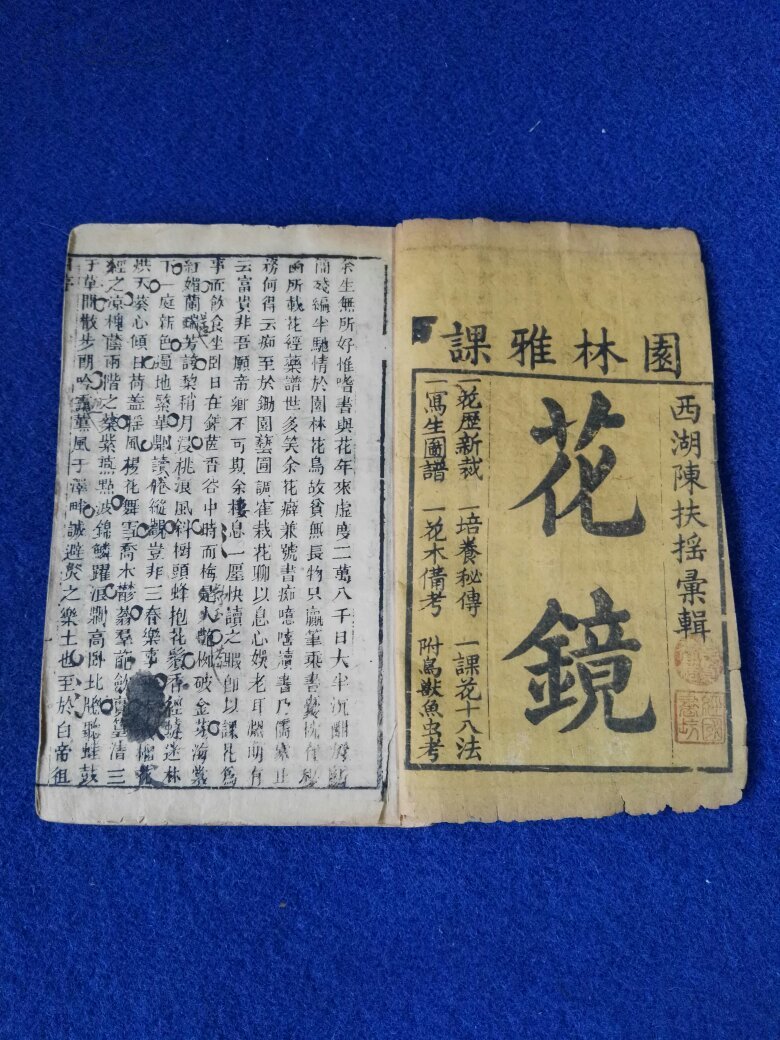 園林雅課
西湖陳扶搖彙輯
花鏡
一花歷新裁 一培養秘傳 一課花十八法
一寫生圖譜 一花木備考 附鳥獸魚虫考
余生無所好惟嗜書與花年來虛度二萬八千日大半沉酣於斷
簡殘編半馳情於園林花鳥故貧無長物只贏筆乘書囊枕有秘
函所載花經藥譜世多笑余花癖兼號書痴噫嘻讀書乃儒家正
務何得云痴至於鋤園藝圃調崔栽花聊以息心娛老耳淵明有
云富貴非吾願帝鄉不可期余棲息一廛快讀之暇卽以課花爲
事而飲食坐臥日在錦茵香谷中時而梅人艷柳破金芽海棠
紅媚蘭瑞芳誇梨梢月浸桃浪風斜樹頭蜂抱花鬚香徑蝶迷林
下一庭新色遍地繁華則讀倦縱觀豈非三春樂事榴花
烘天葵心傾日荷蓋搖風楊花舞雪喬木鬱蓊羣葩斂實篁清三
徑之涼槐蔭兩階之粲紫燕點波錦鱗躍浪則高臥北牕聽蛙鼓
于草間散步朗吟霑薰風于澤畔誠避炎之樂土也至於白帝徂